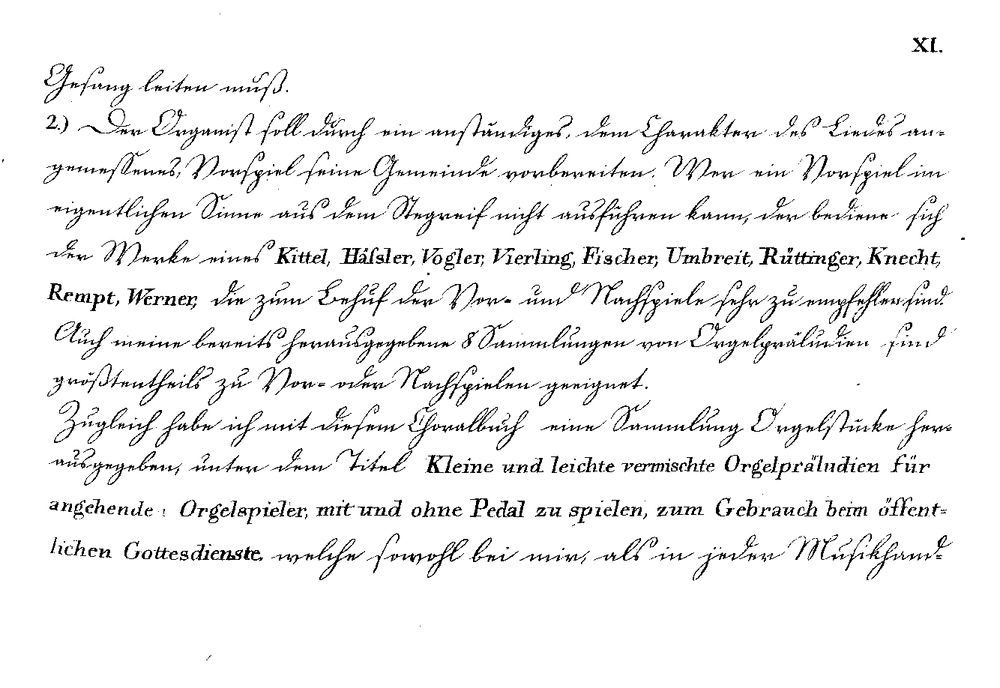 XI.
Gesang leiten muß.
2.) Der Organist soll durch ein anständiges, dem Charakter des Liedes an-
gemessenes, Vorspiel seine Gemeinde vorbereiten. Wer ein Vorspiel im
eigentlichen Sinne aus dem Stegreif nicht ausführen kann, der bediene sich
der Werke eines Kittel, Hässler, Vogler, Vierling, Fischer, Umbreit, Rüttinger, Knecht,
Rempt, Werner, die zum Behuf der Vor- und Nachspiele sehr zu empfehlen sind.
Auch meine bereits herausgegebene 8 Sammlungen von Orgelpräludien sind
größtentheils zu Vor- oder Nachspielen geeignet.
Zugleich habe ich mit diesem Choralbuch eine Sammlung Orgelstücke her-
ausgegeben, unter dem Titel Kleine und leichte vermischte Orgelpräludien für
angehende Orgelspieler, mit und ohne Pedal zu spielen, zum Gebrauch beim öffent-
lichen Gottesdienste, welche sowohl bei mir, als in jeder Musikhand-